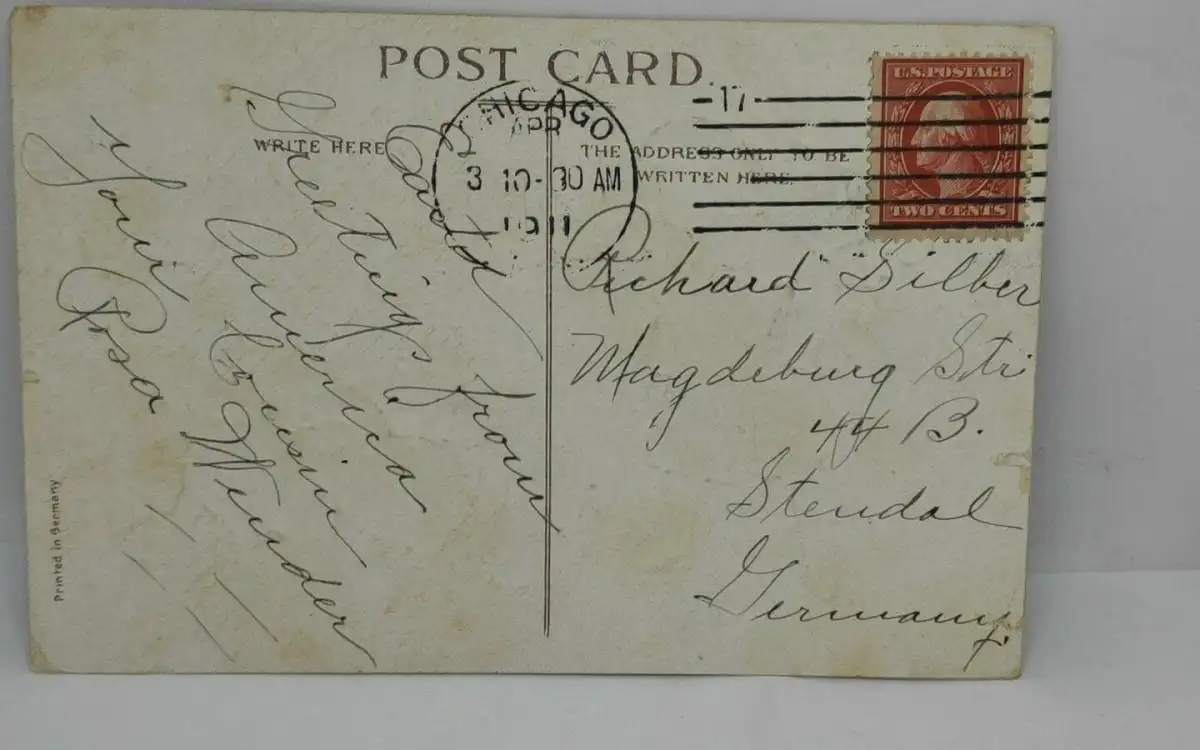 POST CARD.
WRITE HERE
THE ADDRESS ONLY TO BE
WRITTEN HERE.
CHICAGO
APR
3 10-30 AM
1911
17
U.S. POSTAGE
TWO CENTS
Greetings from
America
Cousin
Your
Rosa
Richard Silber
Magdeburg Str
44 B.
Stendal
Germany.
Printed in Germany